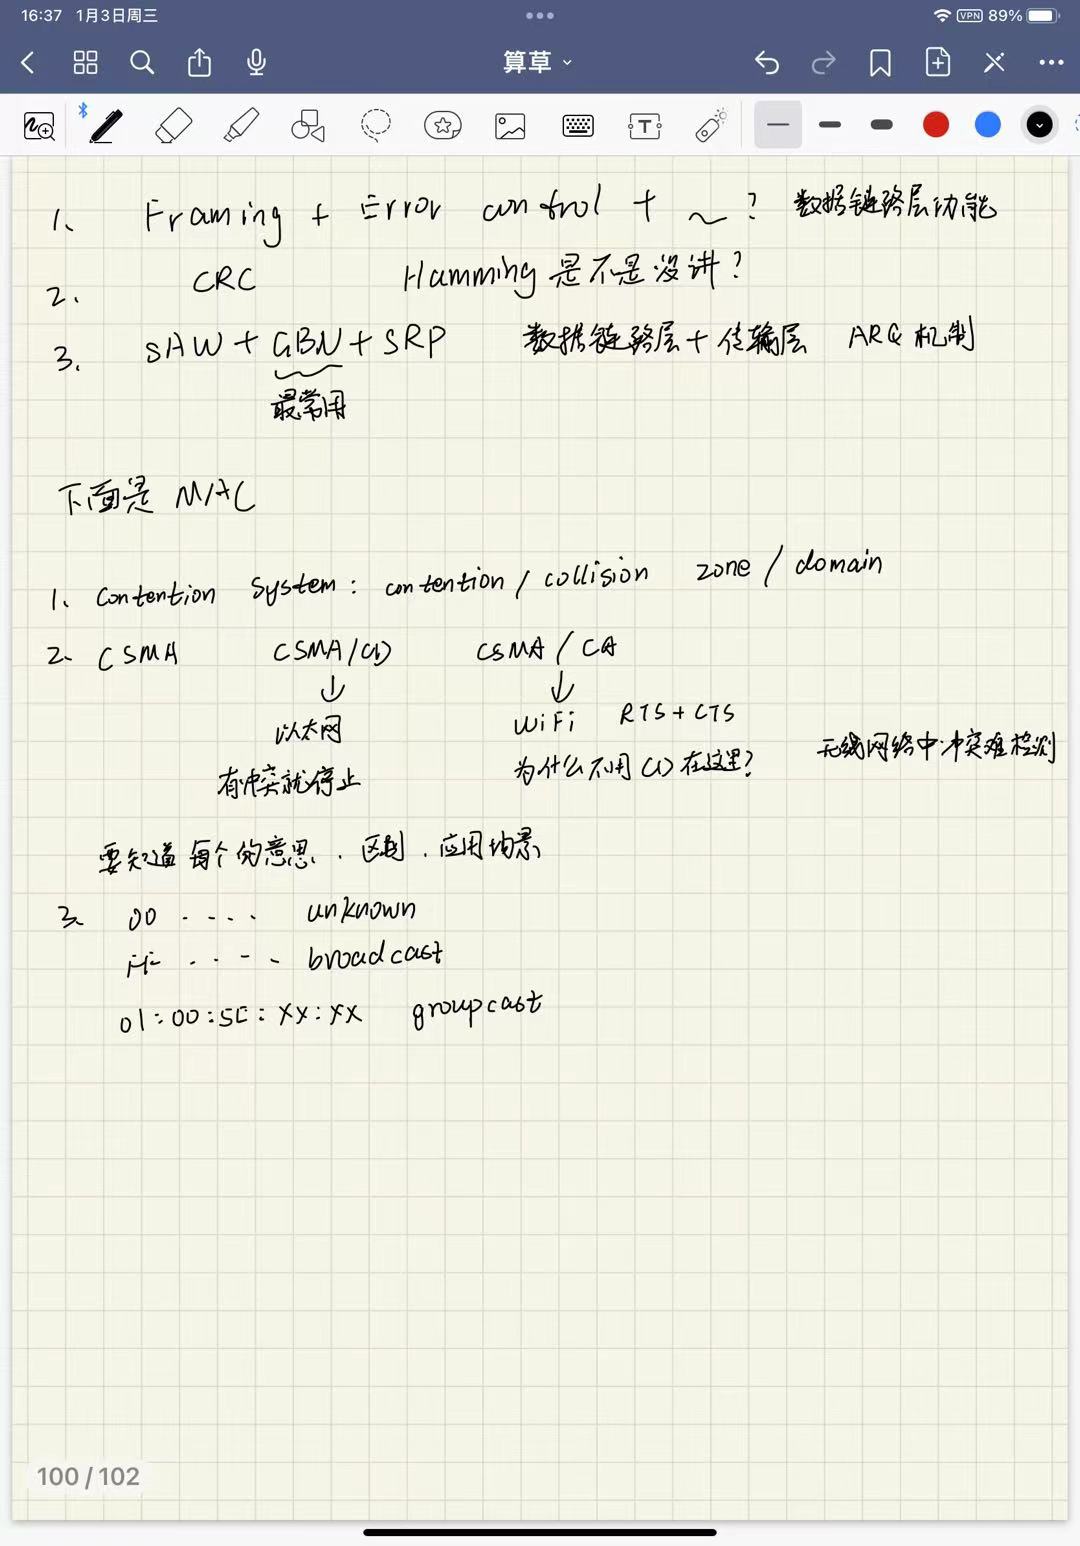 16:37 1月3日周三
VPN 89%
算草
1、 Framing + Error control + ~ ? 数据链路层功能
2、 CRC Hamming 是不是没讲?
3、 SAW + GBN + SRP 数据链路层 + 传输层 ARQ 机制
最常用
下面是 MAC
1、 contention system : contention / collision zone / domain
2、 CSMA CSMA/CD CSMA / CA
↓ ↓
以太网 WiFi RTS + CTS
有冲突就停止 为什么不用 CD 在这里? 无线网络中冲突难检测
要知道每个的意思、区别、应用场景
3、 00 ‥‥ unknown
FF ‥‥ broadcast
01:00:5E:XX:XX groupcast
100 / 102